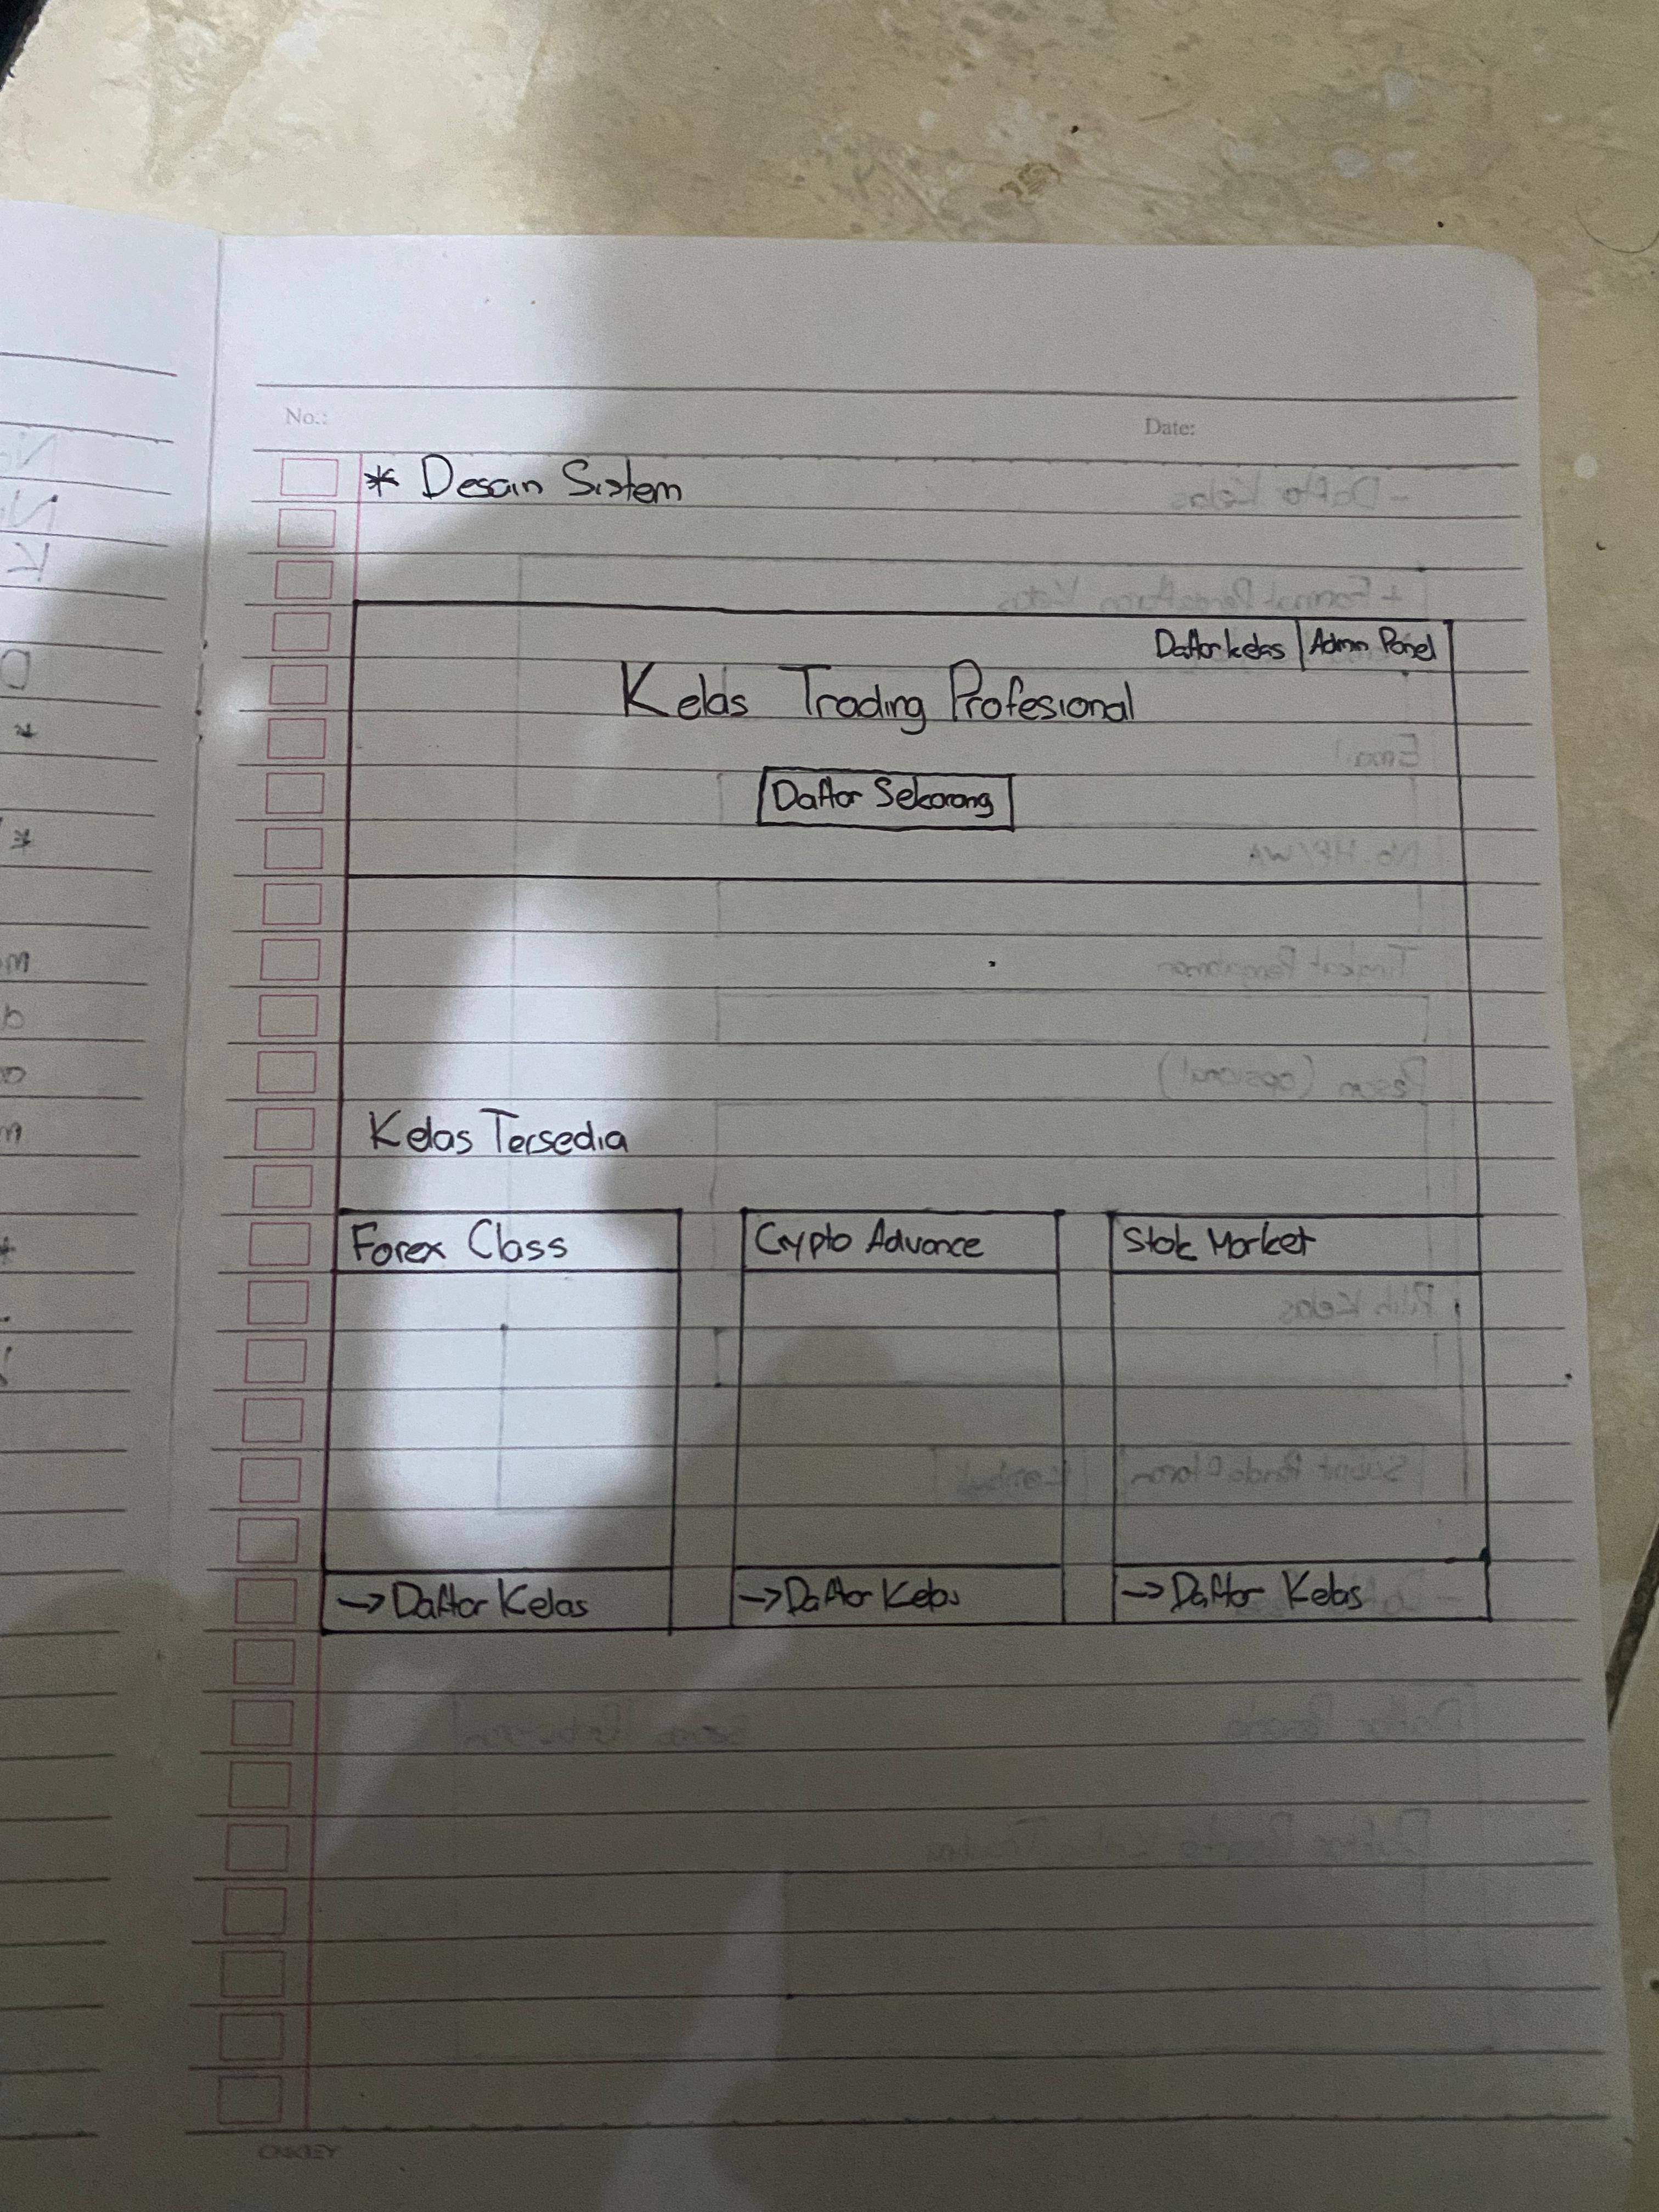 No.:
Date:
* Desain Sistem
Daftar kelas | Admin Panel
Kelas Trading Profesional
Daftar Sekarang
Kelas Tersedia
Forex Class
Crypto Advance
Stok Market
→ Daftar Kelas
→ Daftar Kelas
→ Daftar Kelas